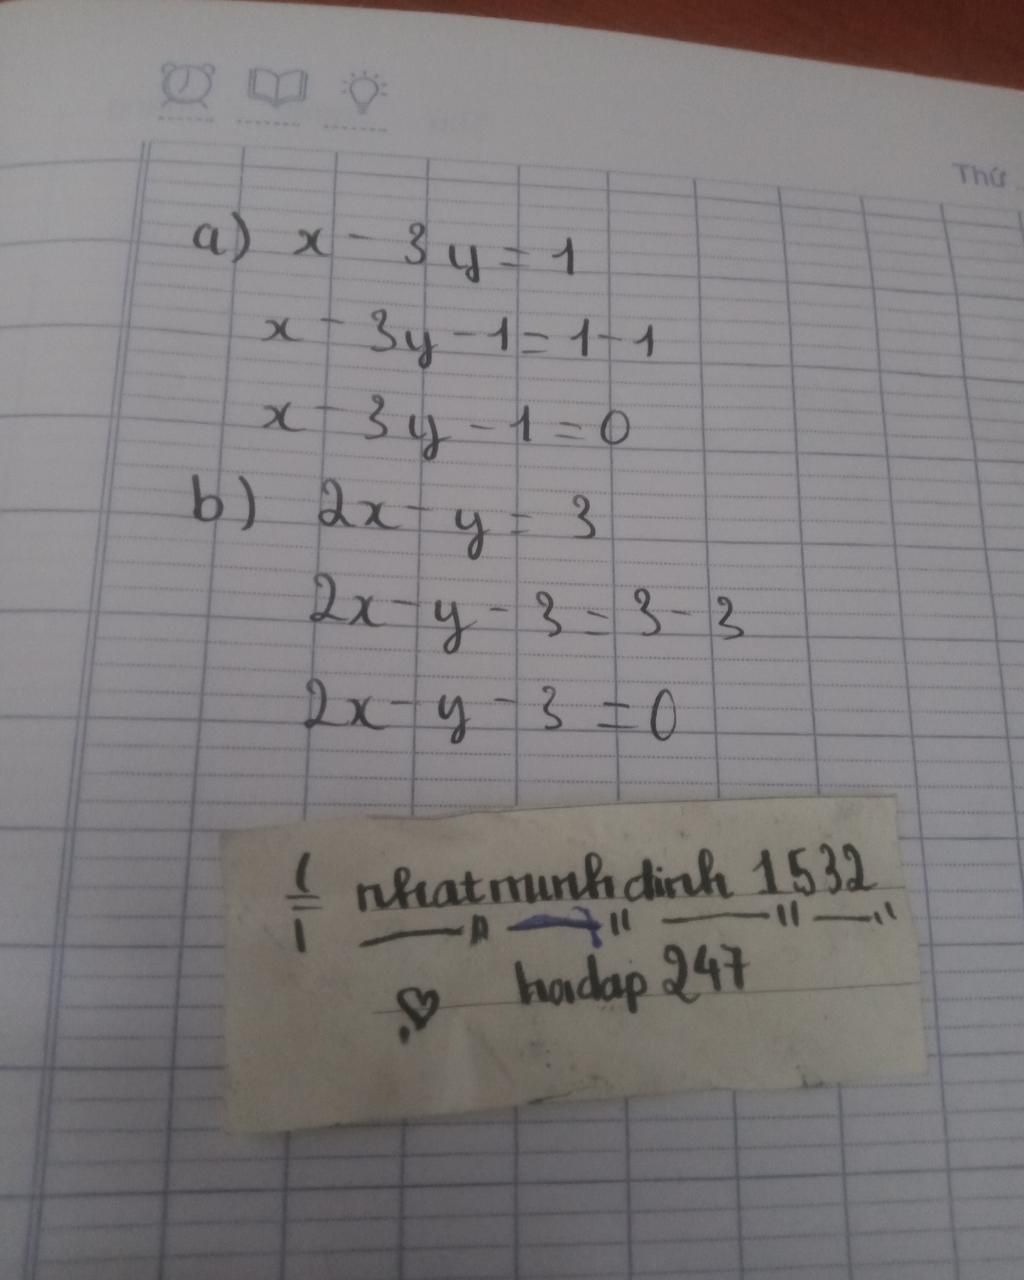 Thứ
a) x - 3y = 1
x - 3y - 1 = 1 - 1
x - 3y - 1 = 0
b) 2x - y = 3
2x - y - 3 = 3 - 3
2x - y - 3 = 0
nhatminhdinh 1532
hoidap 247